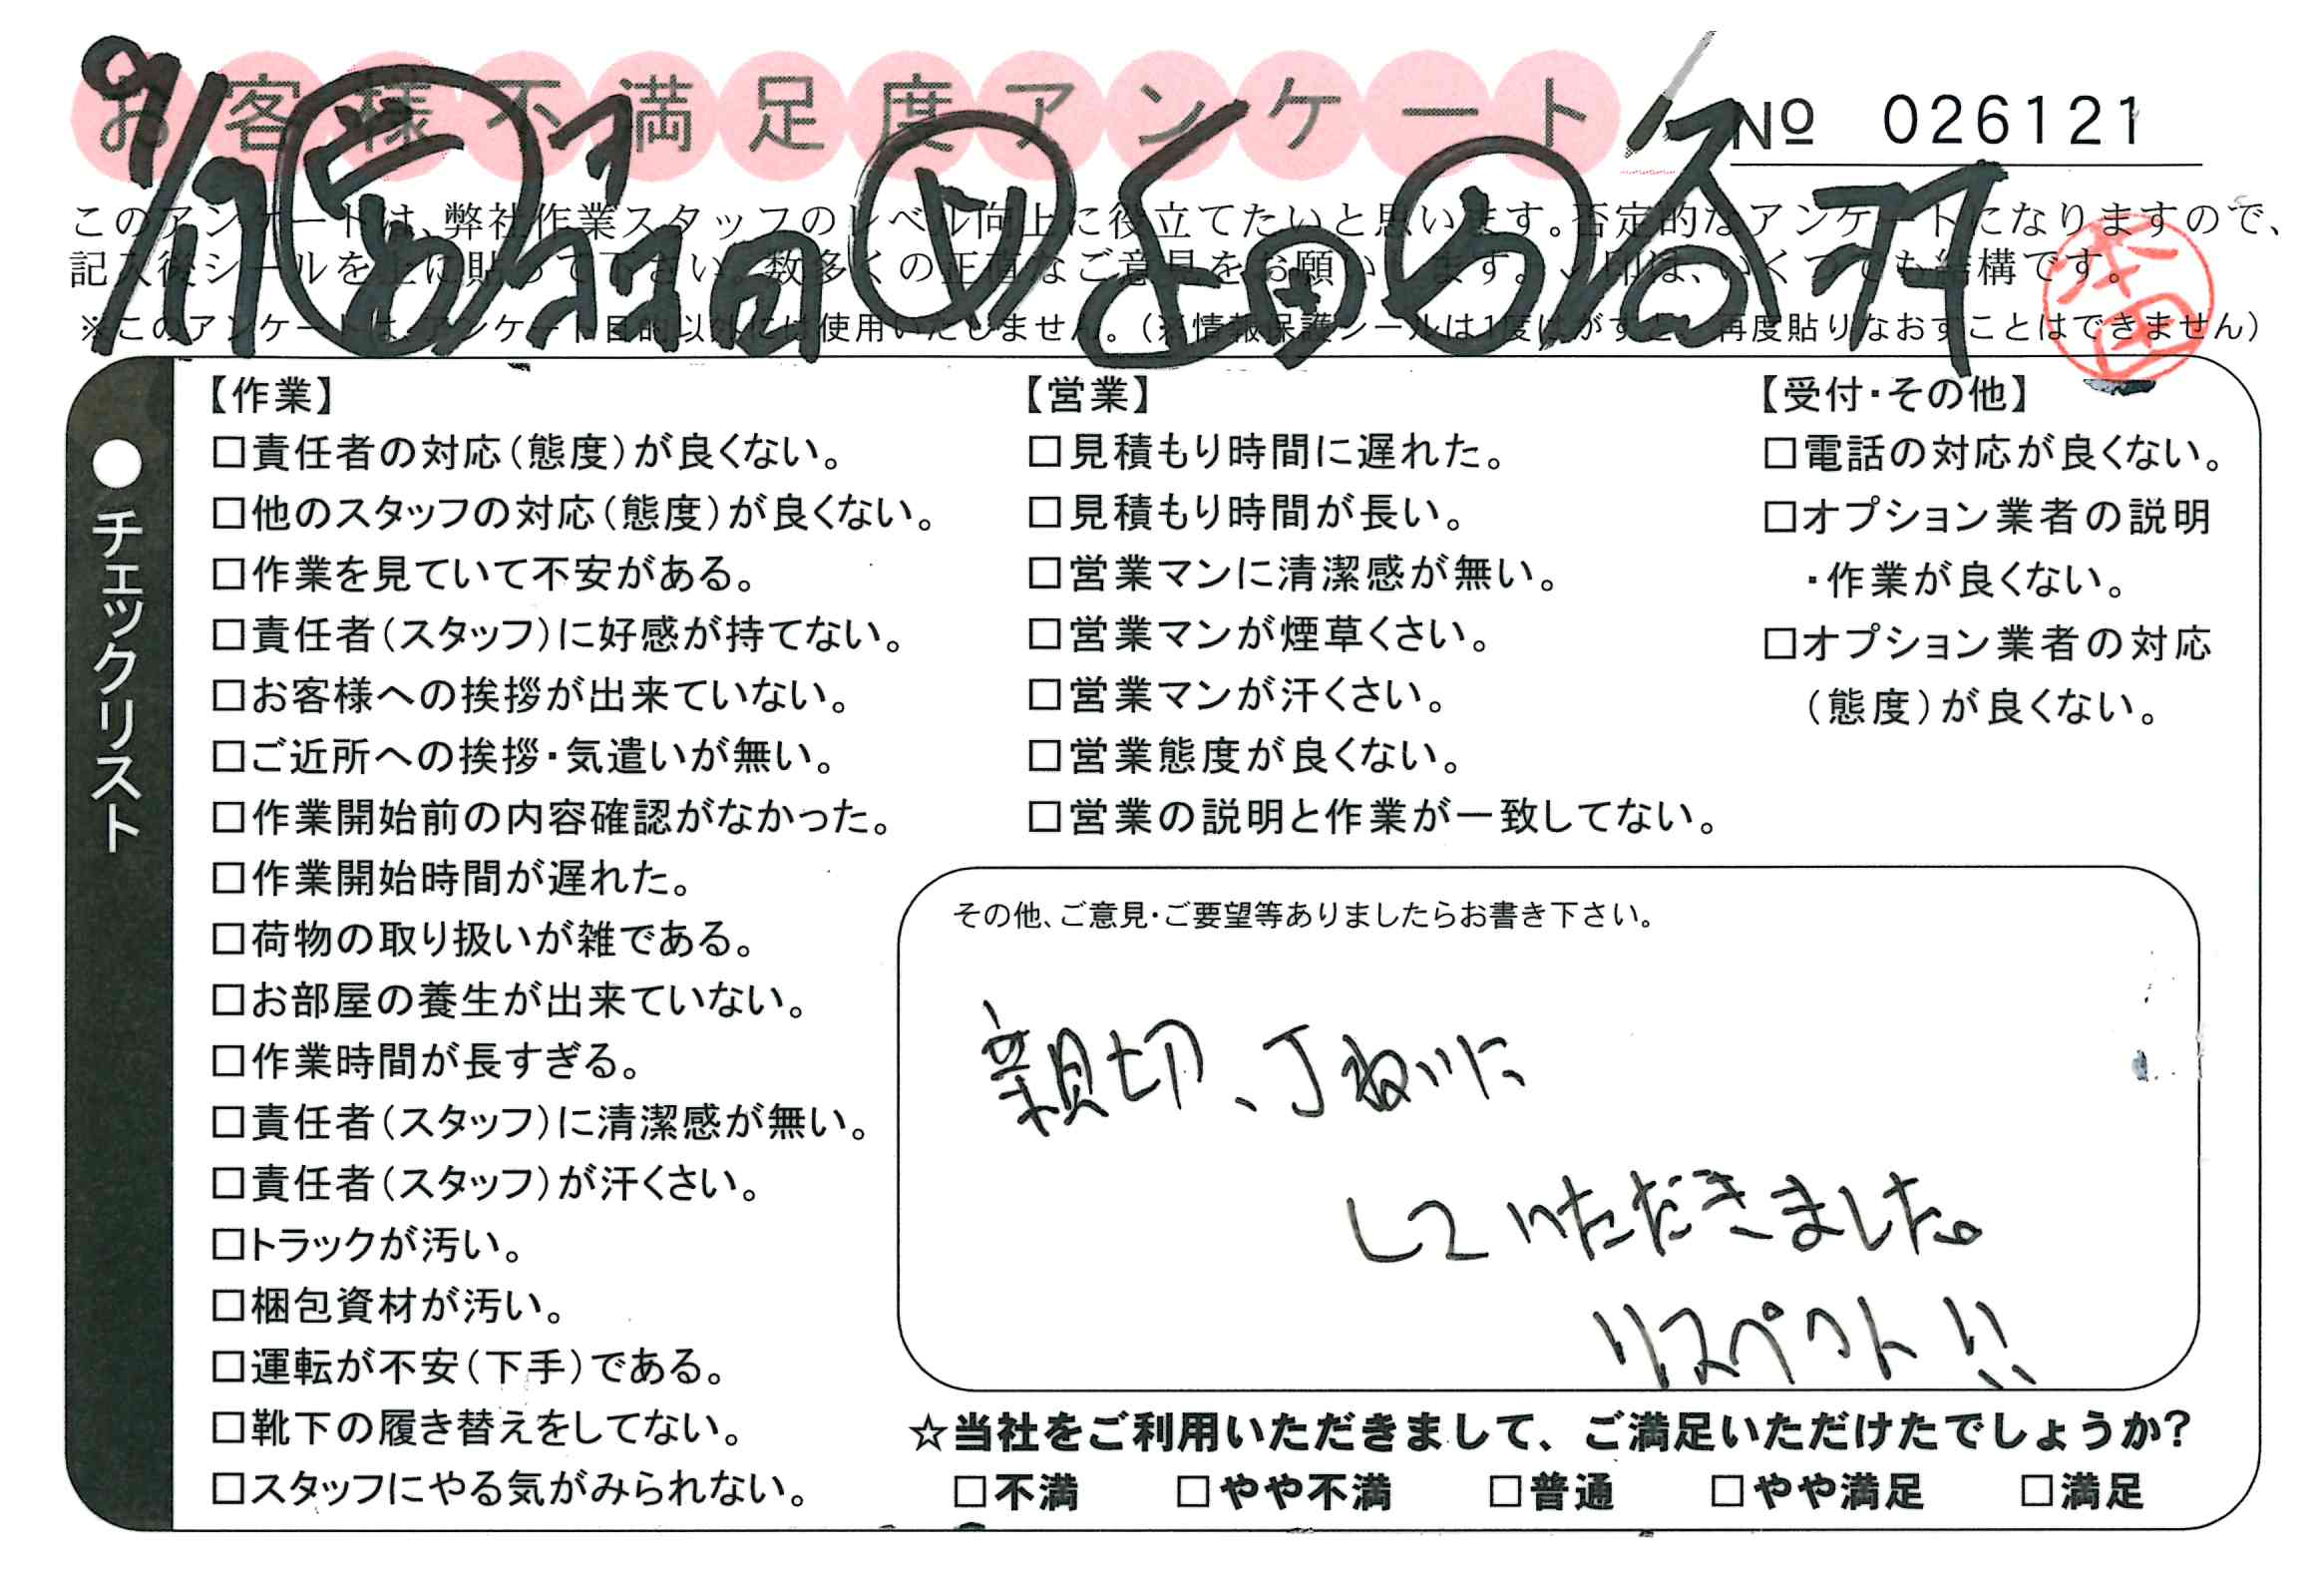 お客様不満足度アンケート
№ 026121
9/17
このアンケートは、弊社作業スタッフのレベル向上に役立てたいと思います。否定的なアンケートになりますので、
記入後シールを上に貼って下さい。数多くの正直なご意見をお願いします。✓印は、いくつでも結構です。
※このアンケートは、アンケート目的以外には使用いたしません。（※情報保護シールは1度はがすと、再度貼りなおすことはできません）
本田
●チェックリスト
【作業】
□責任者の対応（態度）が良くない。
□他のスタッフの対応（態度）が良くない。
□作業を見ていて不安がある。
□責任者（スタッフ）に好感が持てない。
□お客様への挨拶が出来ていない。
□ご近所への挨拶・気遣いが無い。
□作業開始前の内容確認がなかった。
□作業開始時間が遅れた。
□荷物の取り扱いが雑である。
□お部屋の養生が出来ていない。
□作業時間が長すぎる。
□責任者（スタッフ）に清潔感が無い。
□責任者（スタッフ）が汗くさい。
□トラックが汚い。
□梱包資材が汚い。
□運転が不安（下手）である。
□靴下の履き替えをしてない。
□スタッフにやる気がみられない。
【営業】
□見積もり時間に遅れた。
□見積もり時間が長い。
□営業マンに清潔感が無い。
□営業マンが煙草くさい。
□営業マンが汗くさい。
□営業態度が良くない。
□営業の説明と作業が一致してない。
【受付・その他】
□電話の対応が良くない。
□オプション業者の説明
・作業が良くない。
□オプション業者の対応
（態度）が良くない。
その他、ご意見・ご要望等ありましたらお書き下さい。
親切、丁ねいに
していただきました。
リスペクト!!
☆当社をご利用いただきまして、ご満足いただけたでしょうか?
□不満 □やや不満 □普通 □やや満足 □満足